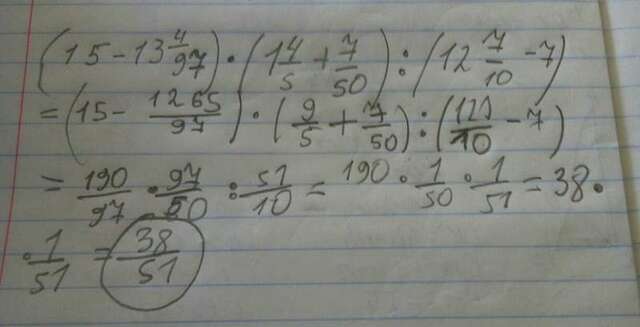 (15 - 13 4/97) · (1 4/5 + 7/50) : (12 7/10 - 7)
= (15 - 1265/97) · (9/5 + 7/50) : (121/10 - 7)
= 190/97 · 97/50 : 51/10 = 190 · 1/50 · 1/51 = 38 ·
· 1/51 = 38/51